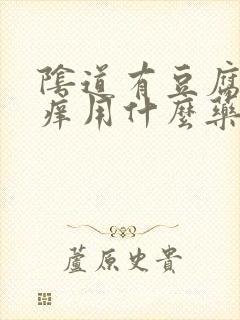 陰道有豆腐
癢用什麼藥
蘆原史貴